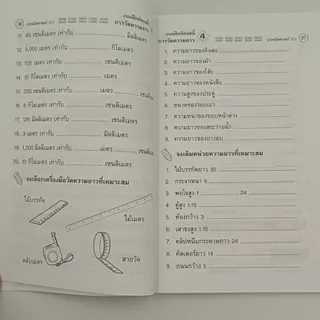 แบบฝึกหัดที่
การวัดความยาว
11. 45 เซนติเมตร เท่ากับ มิลลิเมตร
12. 5,000 เมตร เท่ากับ กิโลเมตร
13. เมตร เท่ากับ เซนติเมตร
14. 15 กิโลเมตร เท่ากับ เมตร
15. 235 เซนติเมตร เท่ากับ เมตร เซนติเมตร
16. 8 กิโลเมตร เท่ากับ เซนติเมตร
17. 120 มิลลิเมตร เท่ากับ เซนติเมตร
18. 9 กิโลเมตร เท่ากับ เมตร
19. 1,320 มิลลิเมตร เท่ากับ เมตร เซนติเมตร
20. 15 กิโลเมตร เท่ากับ เซนติเมตร
จงเลือกเครื่องมือวัดความยาวที่เหมาะสม
ไม้บรรทัด
ไม้เมตร
ตลับเมตร
สายวัด
แบบฝึกหัดที่
การวัดความยาว 4
1. ความยาวของดินสอ
2. ความยาวของผ้า
3. ความยาวของโต๊ะ
4. ความยาวของหนังสือ
5. ความสูงของประตู
6. ขนาดของรอบเอว
7. ความหนาของขอบหน้าต่าง
8. ความยาวของสระว่ายน้ำ
9. ความยาวของยางลบ
จงเติมหน่วยความยาวที่เหมาะสม
1. ไม้บรรทัดยาว 30
2. กระจกหนา 5
3. พอใจสูง 1 24
4. ตู้สูง 1.15
5. ห้องกว้าง 3
6. เสาธงสูง 1.15
7. คลิปหนีบกระดาษยาว 24
8. คัตเตอร์ยาว 15
9. ถนนกว้าง 5